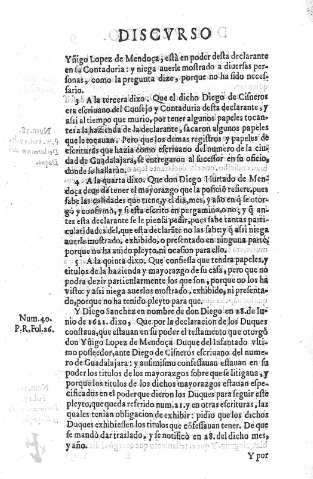 DISCVRSO
Yñigo Lopez de Mendoça, està en poder desta declarante
en su Contaduria: y niega auerle mostrado a diuersas per-
sonas, como la pregunta dize, porque no ha sido neces-
sario.
3 A la tercera dixo. Que el dicho Diego de Cisneros
era escriuano del Consejo y Contaduria desta declarante, y
assi al tiempo que murio, por tener algunos papeles tocan-
tes a la hazienda de la declarante, sacaron algunos papeles
que le tocauan. Pero que los demas registros y papeles de
escrituras que hazia como escriuano del numero de la ciu-
dad de Guadalajara, se entregaron al sucessor en su oficio,
donde se hallaràn.
4 A la quarta dixo. Que don Diego Hurtado de Men
doça deue de tener el mayorazgo que la posiciõ refiere, pues
sabe las calidades que tiene, y el dia, mes, y año en q̃ se otor
gò y confirmò, y si està escrito en pergamino, o no; y q̃ an-
tes esta declarante le pudiera pedir, pues sabe tantas parti-
cularidades del, que esta declarãte no las sabe: y assi niega
auerle mostrado, exhibido, o presentado en ninguna parte,
porque no ha auido pleyto, ni ocasion para ello.
5 A la quinta dixo. Que confiessa que tendra papeles, y
titulos de la hazienda y mayorazgo de su casa, pero que no
podra dezir particularmente los que son, porque no los ha
visto: y assi niega auerlos mostrado, exhibido, ni presenta-
do, porque no ha tenido pleyto para que.
Num. 40.
P.R.Fol. 26.
Y Diego Sanchez en nombre de don Diego en 28. de Iu-
nio de 1622. dixo, Que por la declaracion de los Duques
constaua, que estauan en su poder el testamento que otorgò
don Yñigo Lopez de Mendoça Duque del Infantado vlti-
mo posseedor, ante Diego de Cisneros escriuano del nume-
ro de Guadalajara: y assimismo confessauan estauan en su
poder los titulos de los mayorazgos sobre que se litigaua, y
porque los titulos de los dichos mayorazgos estauan espe-
cificados en el poder que dieron los Duques para seguir este
pleyto, que queda referido num. 21. y en otras escrituras, las
quales tenian obligacion de exhibir: pidio que los dichos
Duques exhibiessen los titulos que cõfessauan tener. De que
se mandò dar traslado, y se notificò en 28. del dicho mes,
y año.
Y por